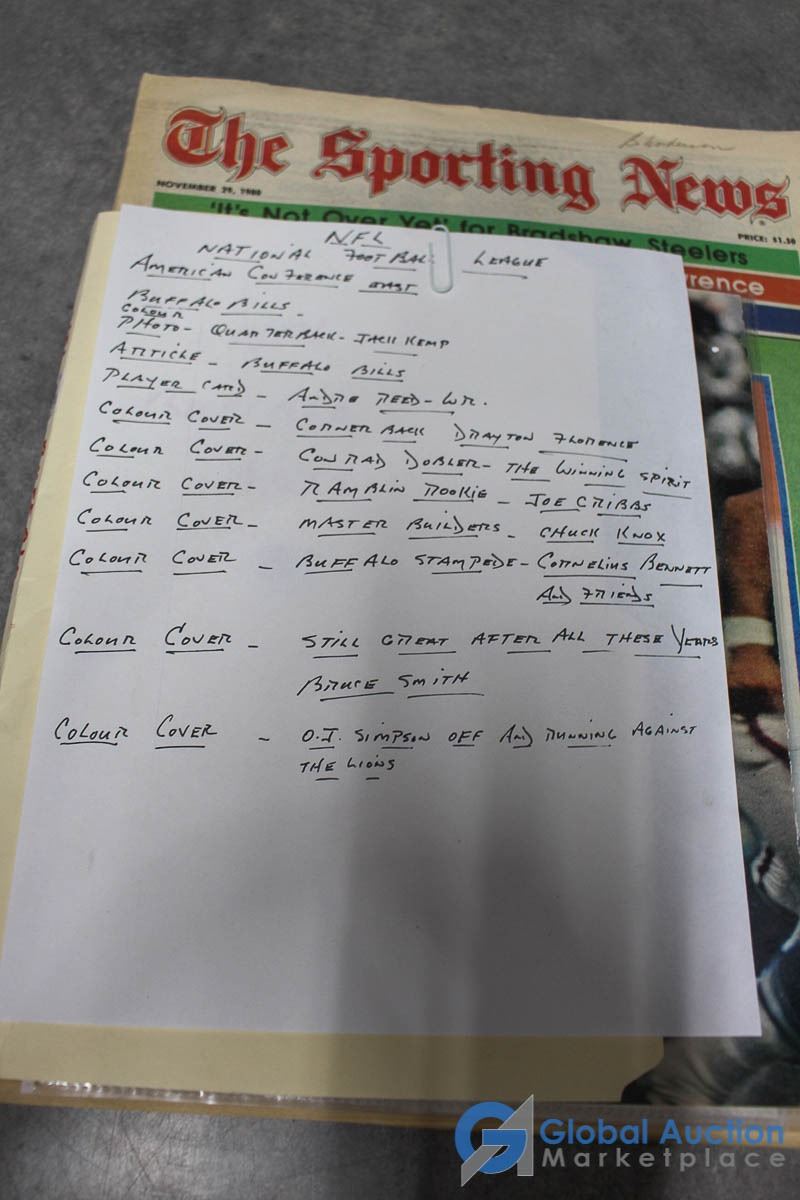 The Sporting News
NOVEMBER 29, 1980
PRICE: $1.50
'It's Not Over Yet' for Bradshaw, Steelers
rence
NFL
NATIONAL FOOTBAL LEAGUE
AMERICAN CONFERENCE EAST
BUFFALO BILLS -
COLOUR
PHOTO - QUARTERBACK - JACK KEMP
ARTICLE - BUFFALO BILLS
PLAYER CARD - ANDRE REED - WR.
COLOUR COVER - CORNER BACK DRAYTON FLORENCE
COLOUR COVER - CONRAD DOBLER - THE WINNING SPIRIT
COLOUR COVER - RAMBLIN ROOKIE - JOE CRIBBS
COLOUR COVER - MASTER BUILDERS - CHUCK KNOX
COLOUR COVER - BUFFALO STAMPEDE - CORNELIUS BENNETT
AND FRIENDS
COLOUR COVER - STILL GREAT AFTER ALL THESE YEARS
BRUCE SMITH
COLOUR COVER - O.J. SIMPSON OFF AND RUNNING AGAINST
THE LIONS
Global Auction
Marketplace